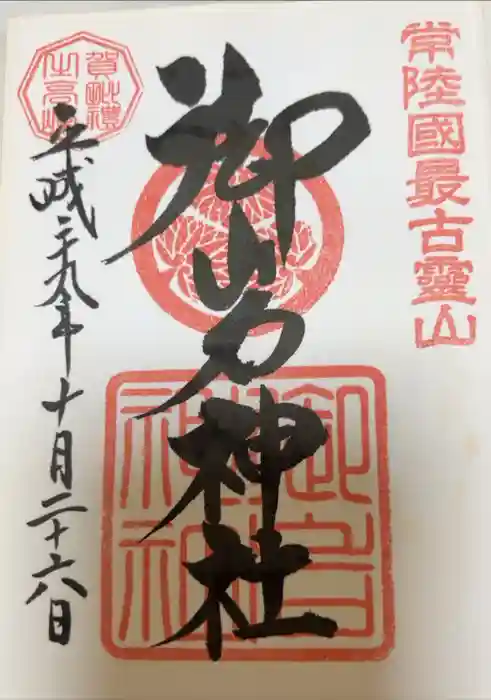 常陸國最古靈山
御岩神社
御岩神社
賀毗禮之高峰
平成二十九年十月二十六日